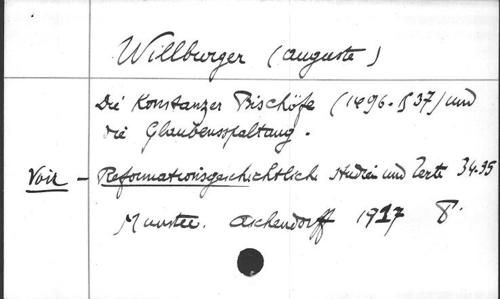 Willburger (Auguste)
Die Konstanzer Bischöfe (1496-1537) und
die Glaubensspaltung.
Voir - Reformationsgeschichtliche Studien und Texte 34-35
Munster. Aschendorff 1917 8°.